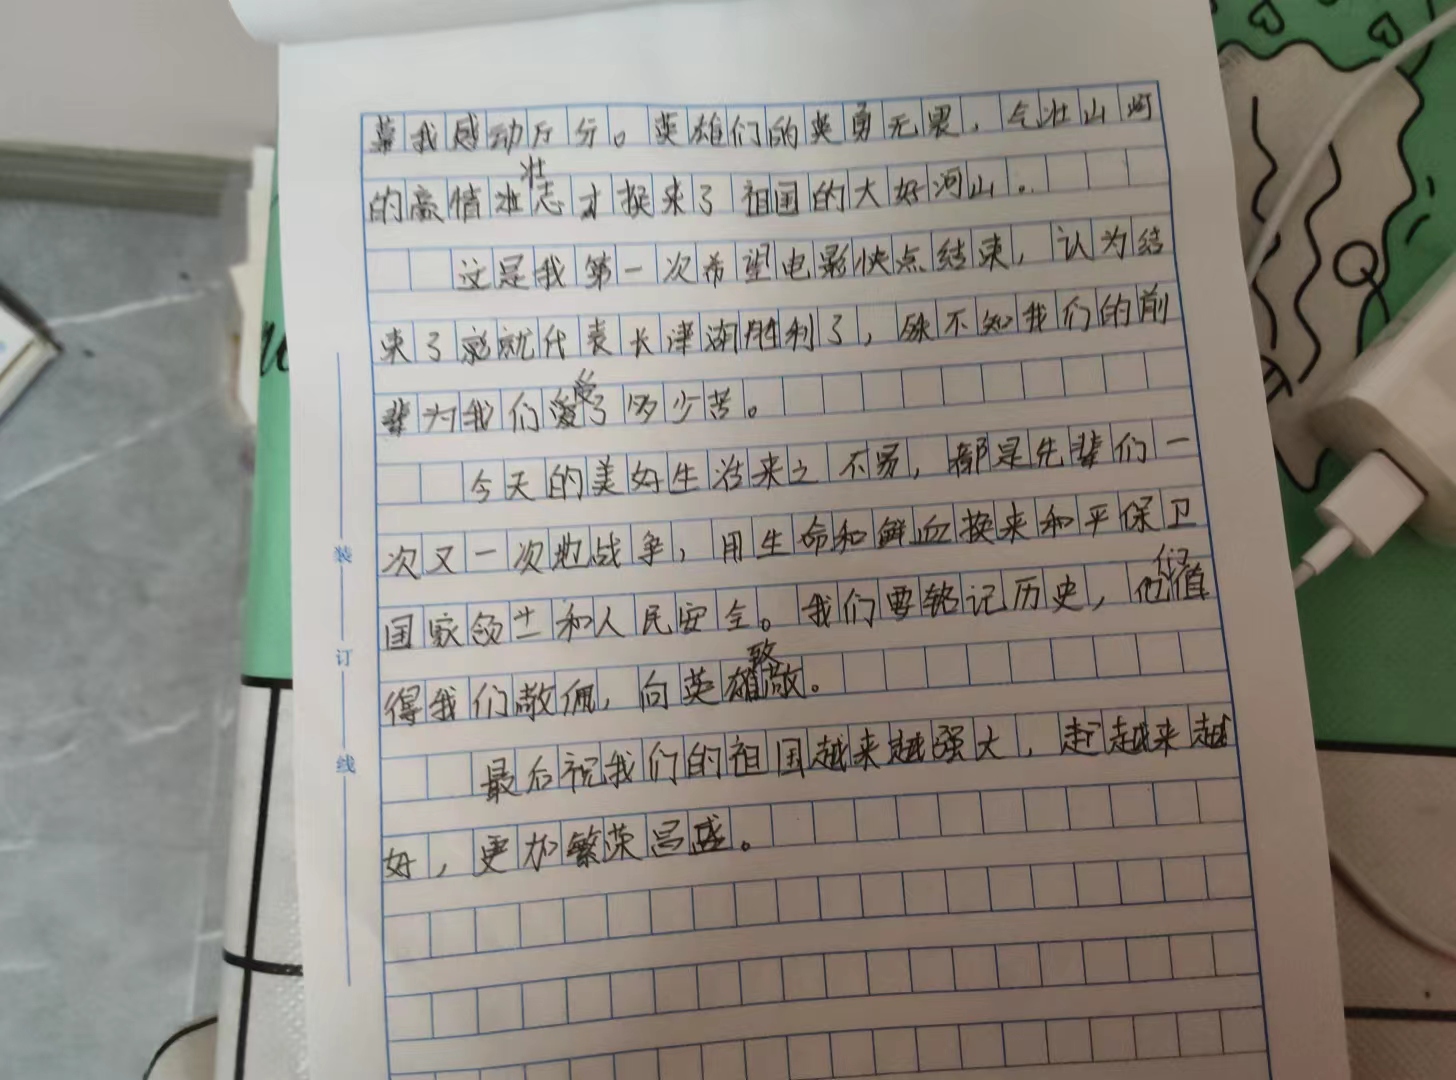 幕我感动万分。英雄们的英勇无畏，气壮山河
的豪情壮志才换来了祖国的大好河山。
这是我第一次希望电影快点结束，认为结
束了就代表长津湖胜利了，殊不知我们的前
辈为我们受了多少苦。
今天的美好生活来之不易，都是先辈们一
次又一次地战争，用生命和鲜血换来和平保卫
国家领土和人民安全。我们要铭记历史，他们值
得我们敬佩，向英雄致敬。
最后祝我们的祖国越来越强大，越来越
好，更加繁荣昌盛。
装
订
线